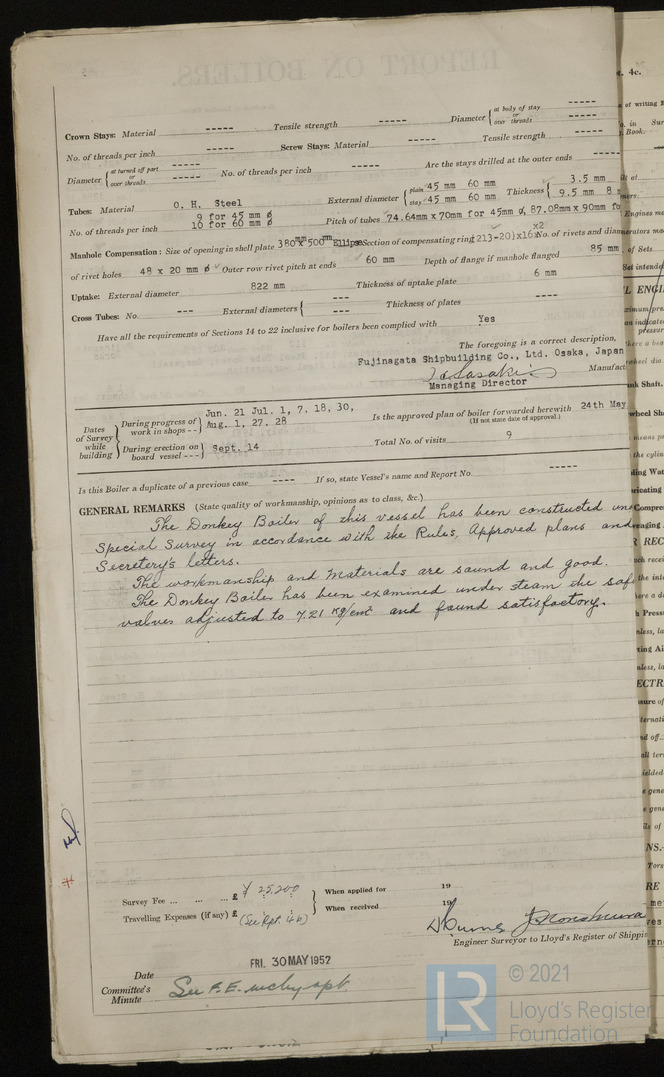 Crown Stays: Material ----- Tensile strength ----- Diameter { at body of stay or over threads -----
No. of threads per inch ----- Screw Stays: Material ----- Tensile strength -----
Diameter { at turned off part or over threads ----- No. of threads per inch ----- Are the stays drilled at the outer ends -----
Tubes: Material O. H. Steel External diameter { plain 45 mm 60 mm stay 45 mm 60 mm Thickness { 3.5 mm 9.5 mm 8
No. of threads per inch 9 for 45 mm ø 10 for 60 mm ø Pitch of tubes 74.64mm x 70mm for 45mm ø, 87.08mm x 90mm fo
Manhole Compensation: Size of opening in shell plate 380mm x 500mm Ellipse Section of compensating ring (213-20)x16x2 No. of rivets and diam
of rivet holes 48 x 20 mm ø Outer row rivet pitch at ends 60 mm Depth of flange if manhole flanged 85 mm
Uptake: External diameter 822 mm Thickness of uptake plate 6 mm
Cross Tubes: No. --- External diameters { --- --- Thickness of plates ----
Have all the requirements of Sections 14 to 22 inclusive for boilers been complied with Yes
The foregoing is a correct description,
Fujinagata Shipbuilding Co., Ltd. Osaka, Japan
Manufact
Managing Director
Dates of Survey while building { During progress of work in shops -- } Jun. 21 Jul. 1, 7. 18, 30, Aug. 1, 27. 28
Is the approved plan of boiler forwarded herewith 24th May
(If not state date of approval.)
During erection on board vessel --- } Sept. 14 Total No. of visits 9
Is this Boiler a duplicate of a previous case ---- If so, state Vessel's name and Report No. -----
GENERAL REMARKS (State quality of workmanship, opinions as to class, &c.)
The Donkey Boiler of this vessel has been constructed un
Special Survey in accordance with the Rules, Approved plans and
Secretery's letters.
The workmanship and Materials are sound and good.
The Donkey Boiler has been examined under steam the saf
valves adjusted to 7.21 kg/cm² and found satisfactory.
Survey Fee ... ... ... £ ¥ 25,200 } When applied for 19
Travelling Expenses (if any) £ (See Rpt. 4b) When received 19
Engineer Surveyor to Lloyd's Register of Shippin
Date FRI. 30 MAY 1952
Committee's
Minute See F.E. mchy rpt.
LR © 2021
Lloyd's Register
Foundation